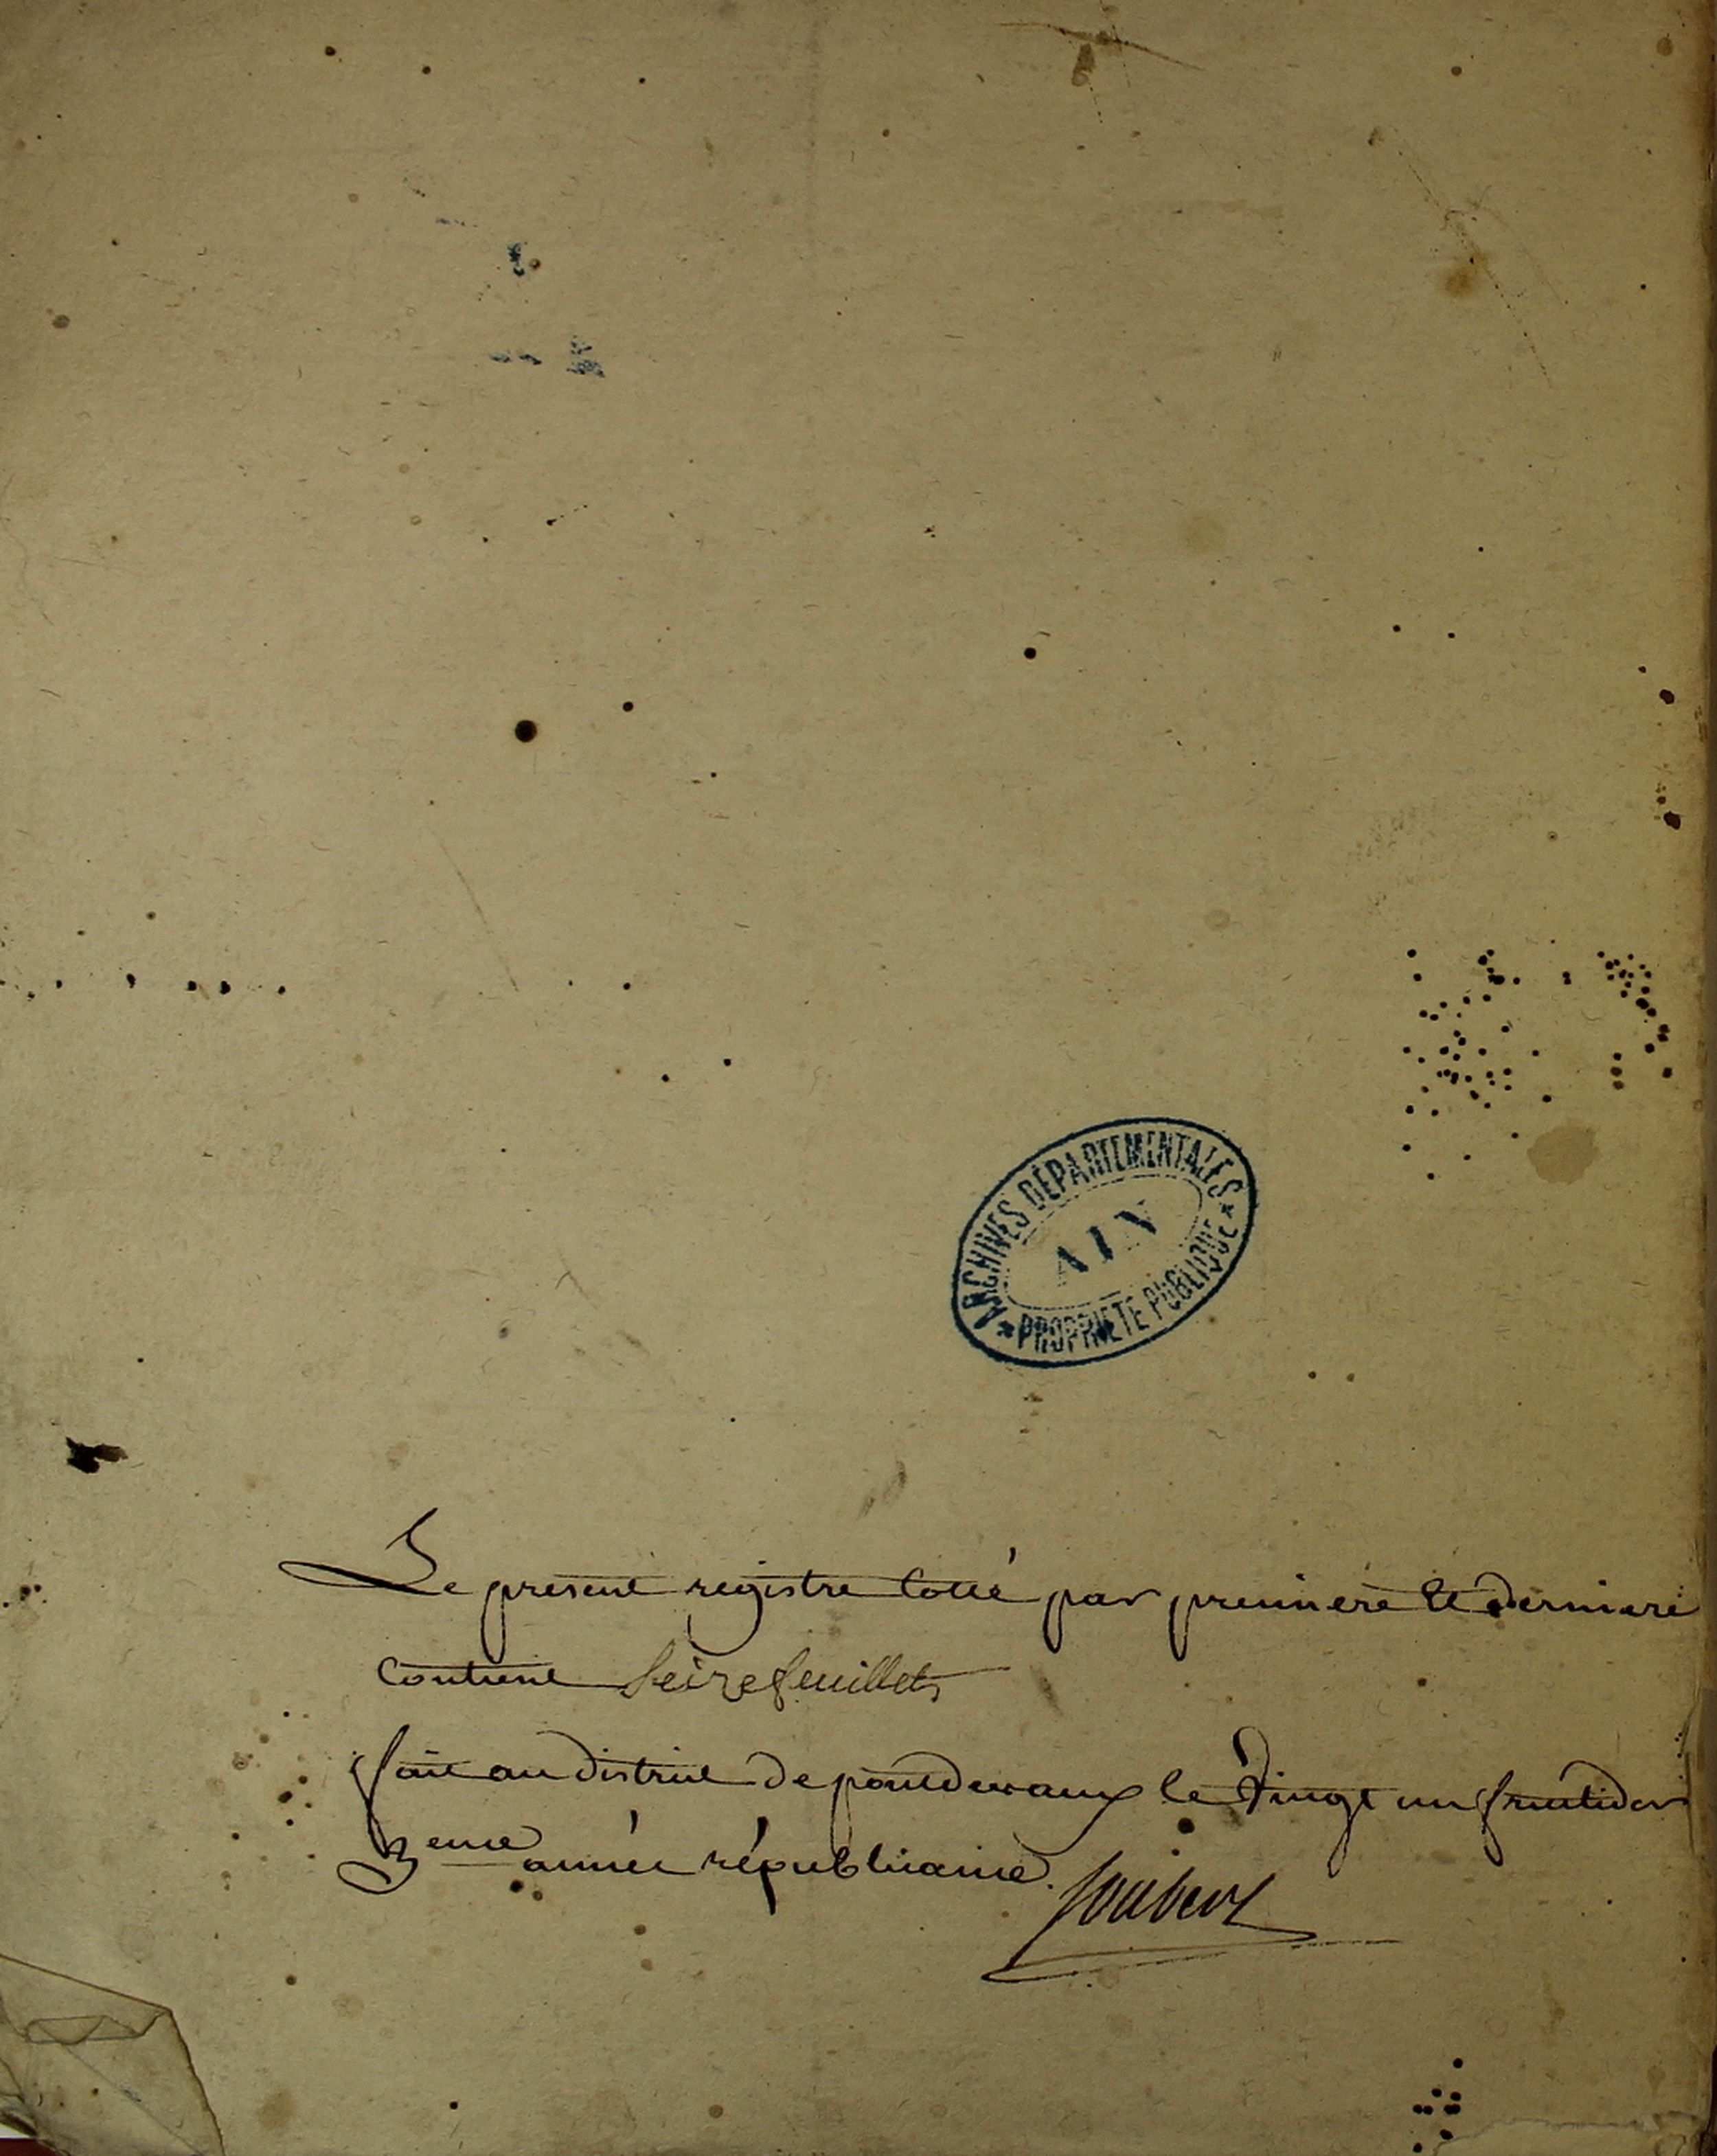 ARCHIVES DÉPARTEMENTALES
AIN
PROPRIETE PUBLIQUE
Le present registre cotté par premiere et derniere
contient seize feuillets
fait au district de pontdevaux le vingt un fructidor
3eme année républicaine.
Joubert